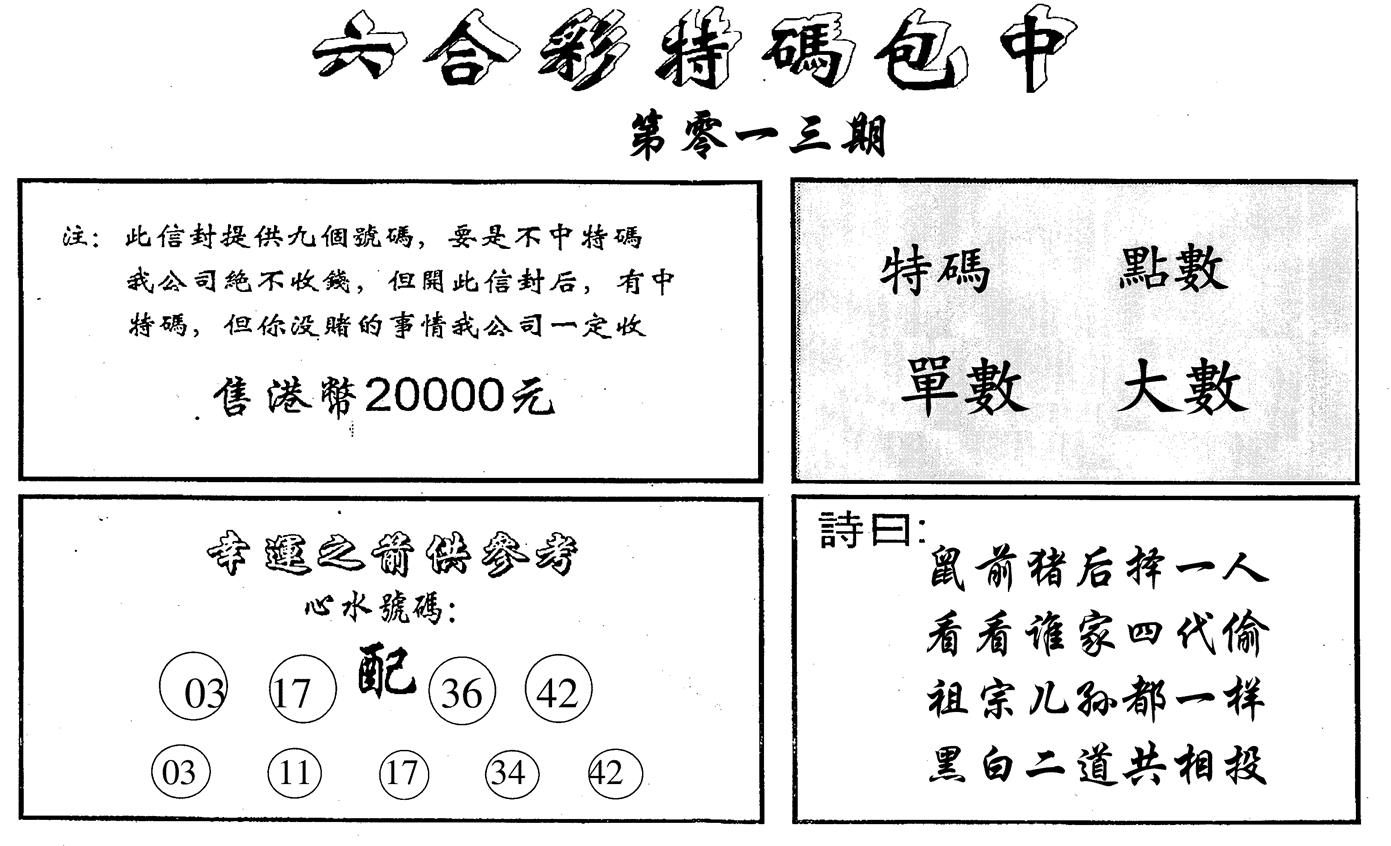 六合彩特碼包中
第零一三期
注：此信封提供九個號碼，要是不中特碼
我公司絕不收錢，但開此信封后，有中
特碼，但你没賭的事情我公司一定收
售港幣20000元
特碼 點數
單數 大數
幸運之箭供參考
心水號碼：
03 17 配 36 42
03 11 17 34 42
詩曰：
鼠前猪后择一人
看看谁家四代偷
祖宗儿孙都一样
黑白二道共相投